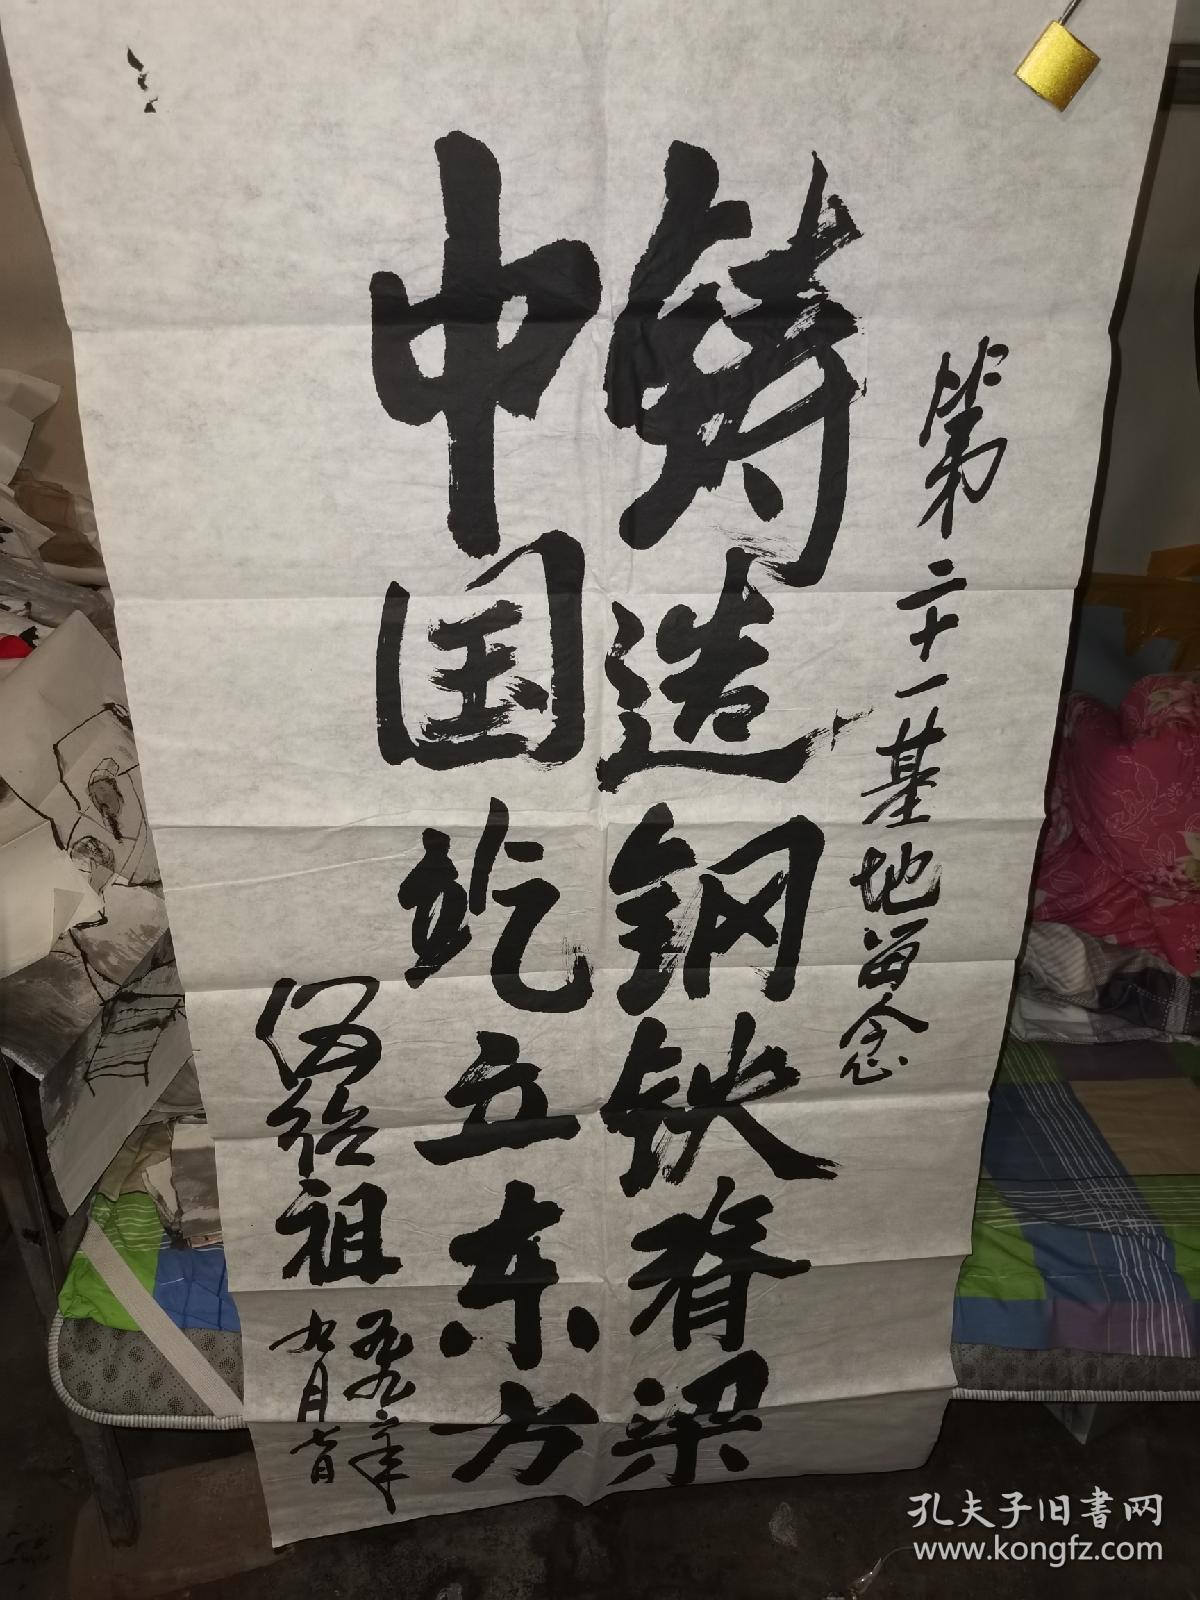 第二十一基地留念
铸造钢铁脊梁
中国屹立东方
伍绍祖
九月六日
孔夫子旧書网
www.kongfz.com